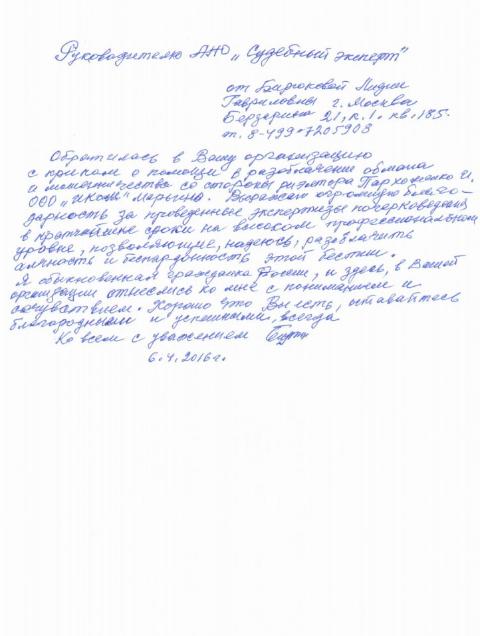 Руководителю АНО „Судебный эксперт"
от Бирюковой Лидии
Гавриловны г. Москва
Берзарина 21, к. 1. кв. 185.
т. 8-499-7205903
Обратилась в Вашу организацию
с криком о помощи в разоблачении обмана
и мошенничества со стороны риэлтора Пархоменко И.
ООО „Инком" Марьино. Выражаю огромную благо-
дарность за проведенные экспертизы почерковедения
в кратчайшие сроки на высоком профессиональном
уровне, позволяющие, надеюсь, разоблачить
алчность и беспардонность этой бестии.
Я обыкновенная гражданка России, и здесь, в Вашей
организации отнеслись ко мне с пониманием и
сочувствием. Хорошо что Вы есть, оставайтесь
благородными и успешными, всегда
Ко всем с уважением
6.4.2016г.